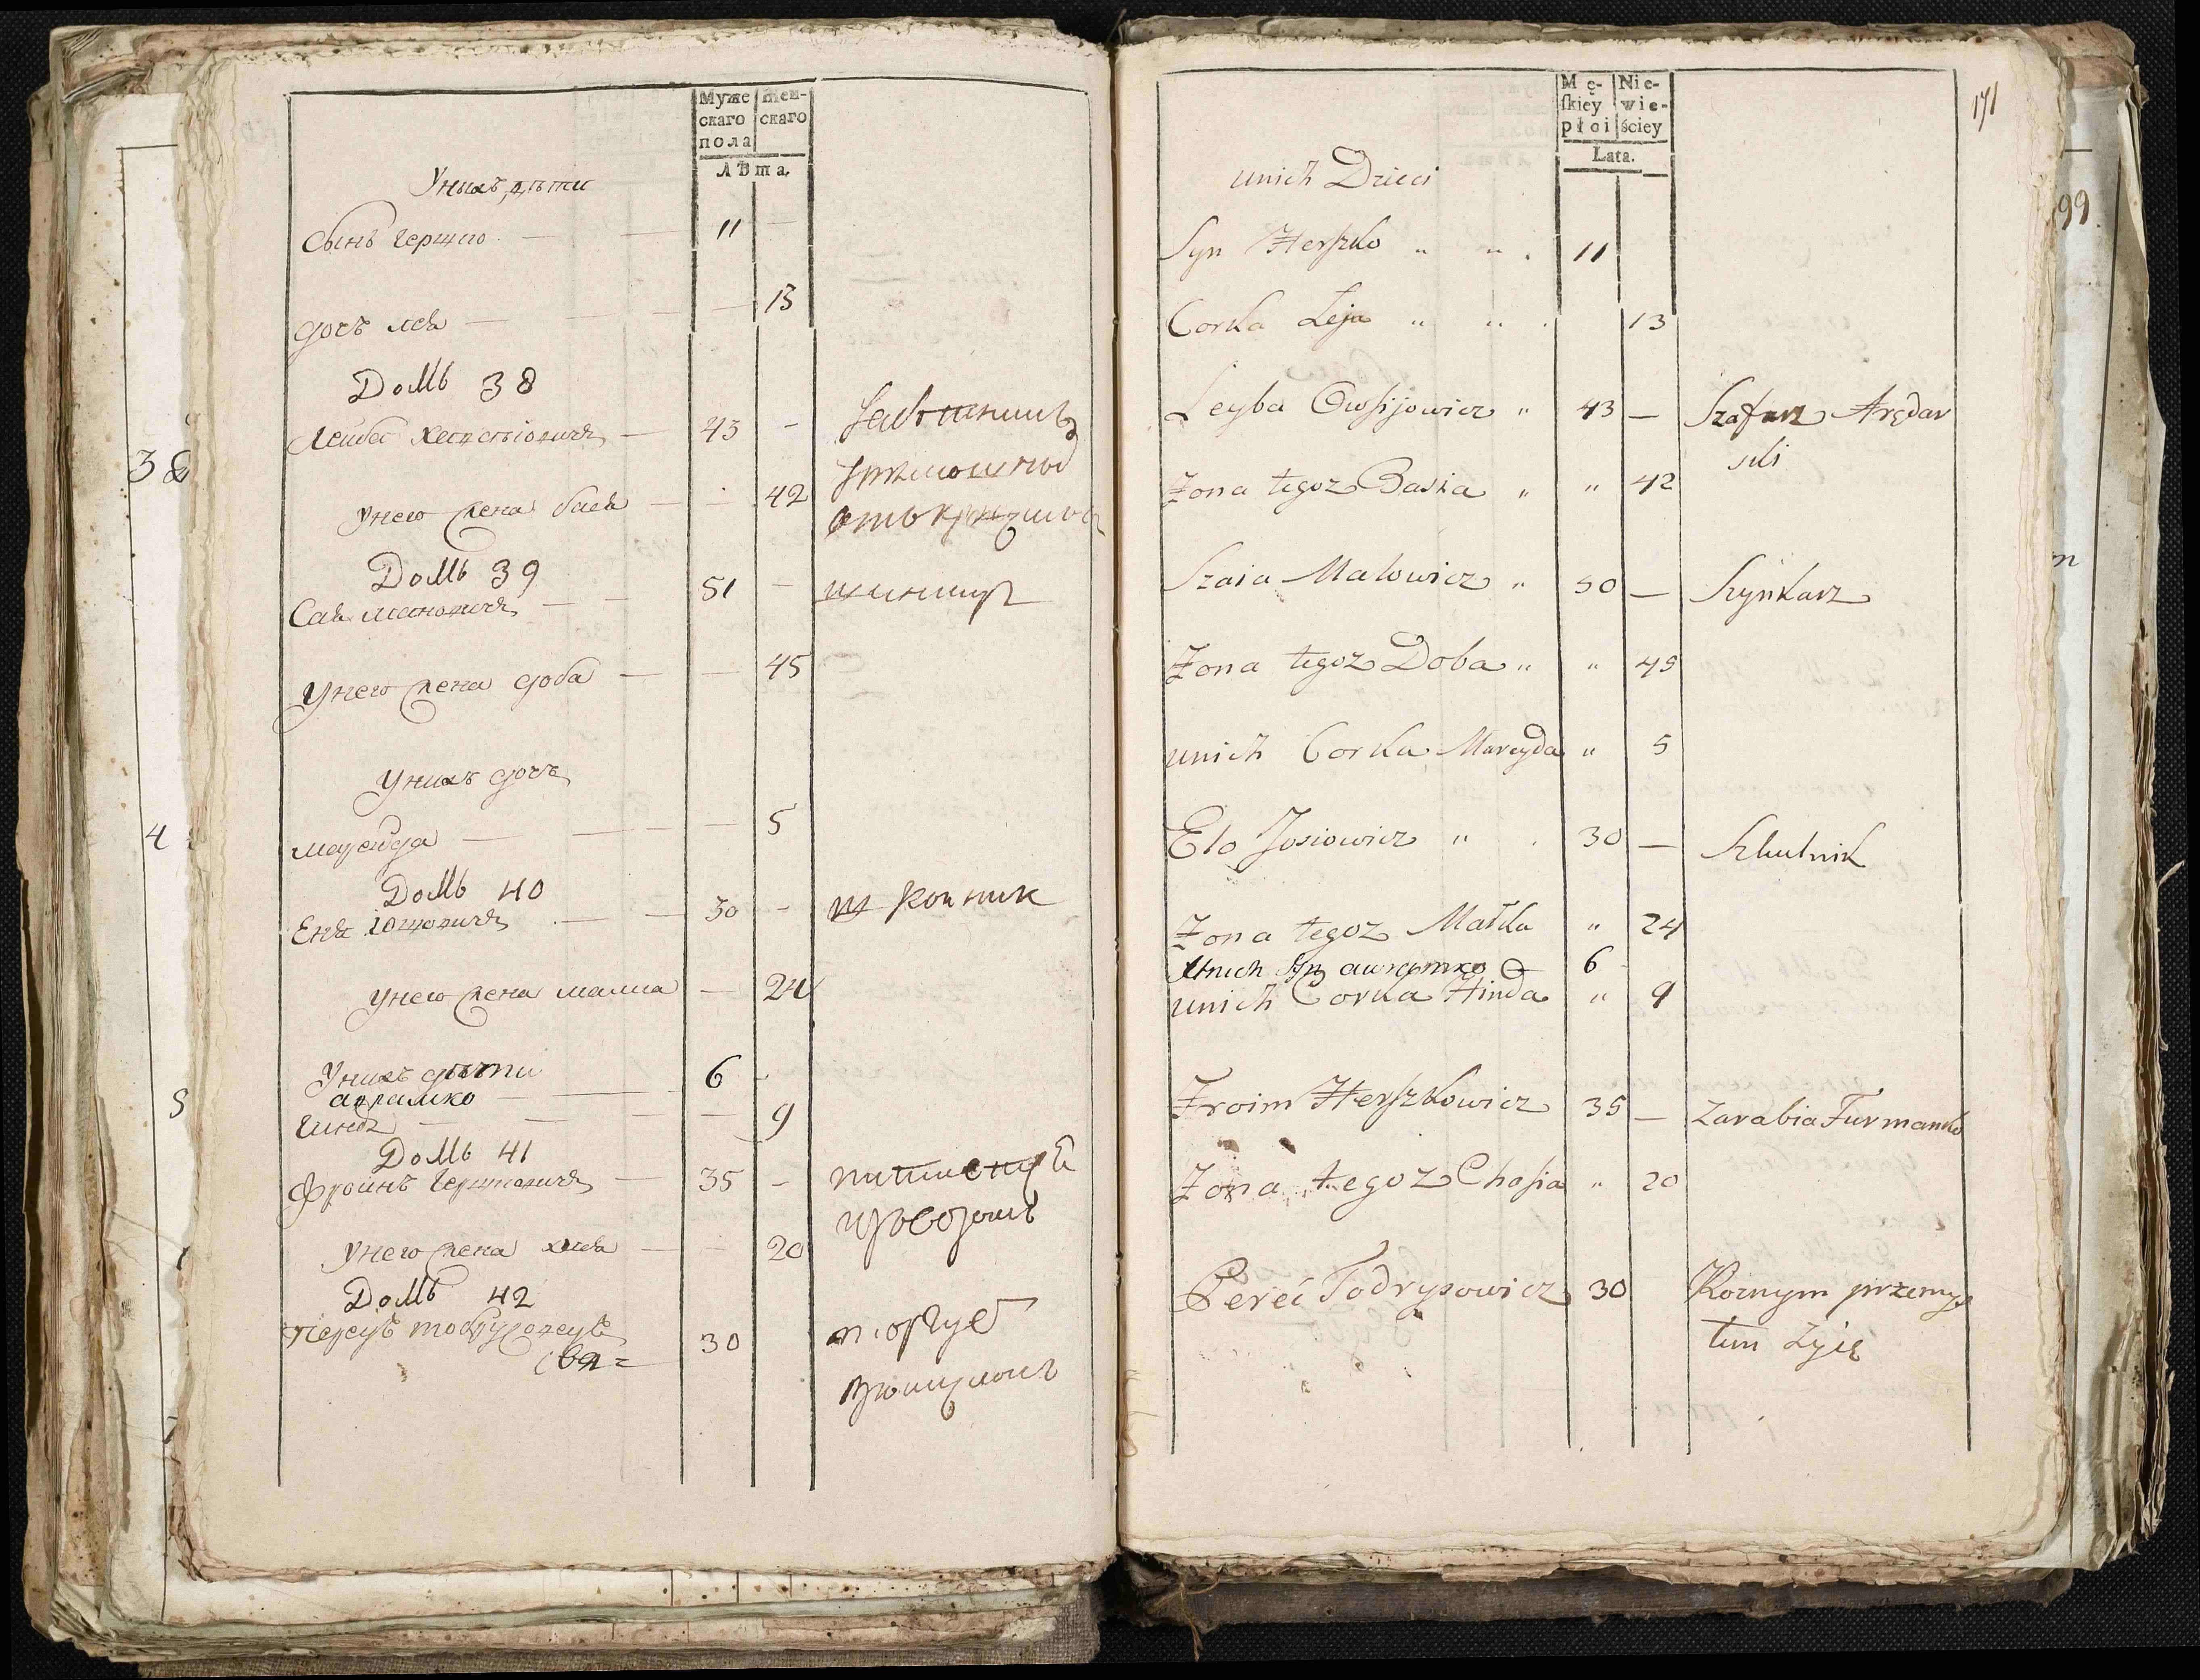 Муже
скаго
пола
жен-
скаго
Лѣта.
Унихъ дѣти
Сынъ Гершко 11
дочь лея 13
Домъ 38
Лейба 43 -
унего жена бася 42
Домъ 39
Сая 51 - шинкар
унего жена доба 45
унихъ дочь
марейда 5
Домъ 40
30 - школник
унего жена малка 24
Унихъ дѣти
аврамко 6
Гинда 9
Домъ 41
Фроимъ Гершковичъ 35 -
извозомъ
унего жена хася 20
Домъ 42
30 торгуе
171
Mę-
ſkiey
płoi
Nie-
wie-
ściey
Lata.
unich Dzieci
Syn Herszko " " 11
Corka Leja " " 13
Leyba Owsijowicz " 43 — Szafarz Arędar
ski
Zona tegoz Basia " " 42
Szaia Malowicz " 50 — Szynkarz
Zona tegoz Doba " " 45
unich Corka Mareyda " 5
Elo Josiowicz " 30 — Szkulnik
Zona tegoz Małka " 24
Unich Syn awramko 6
unich Corka Hinda " 9
Froim Herszkowicz 35 — Zarabia Furmanko
Zona tegoz Chasia " 20
Pereć Todrysowicz 30 Rożnym przemys
łem żyię
38
4
5
99